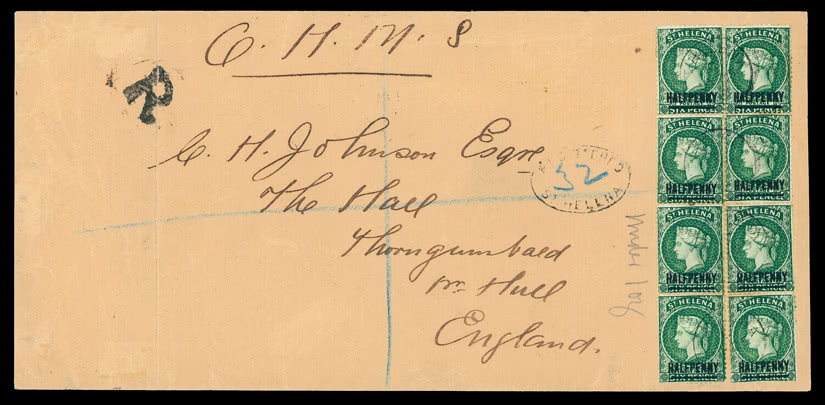 O. H. M. S
R
C. H. Johnson Esqre
The Hall
Thorngumbald
nr Hull
England.
REGISTERED
32
ST HELENA
Under 1 oz
ST HELENA
HALFPENNY
SIX PENCE
ST HELENA
HALFPENNY
SIX PENCE
ST HELENA
HALFPENNY
SIX PENCE
ST HELENA
HALFPENNY
SIX PENCE
ST HELENA
HALFPENNY
SIX PENCE
ST HELENA
HALFPENNY
SIX PENCE
ST HELENA
HALFPENNY
SIX PENCE
ST HELENA
HALFPENNY
SIX PENCE